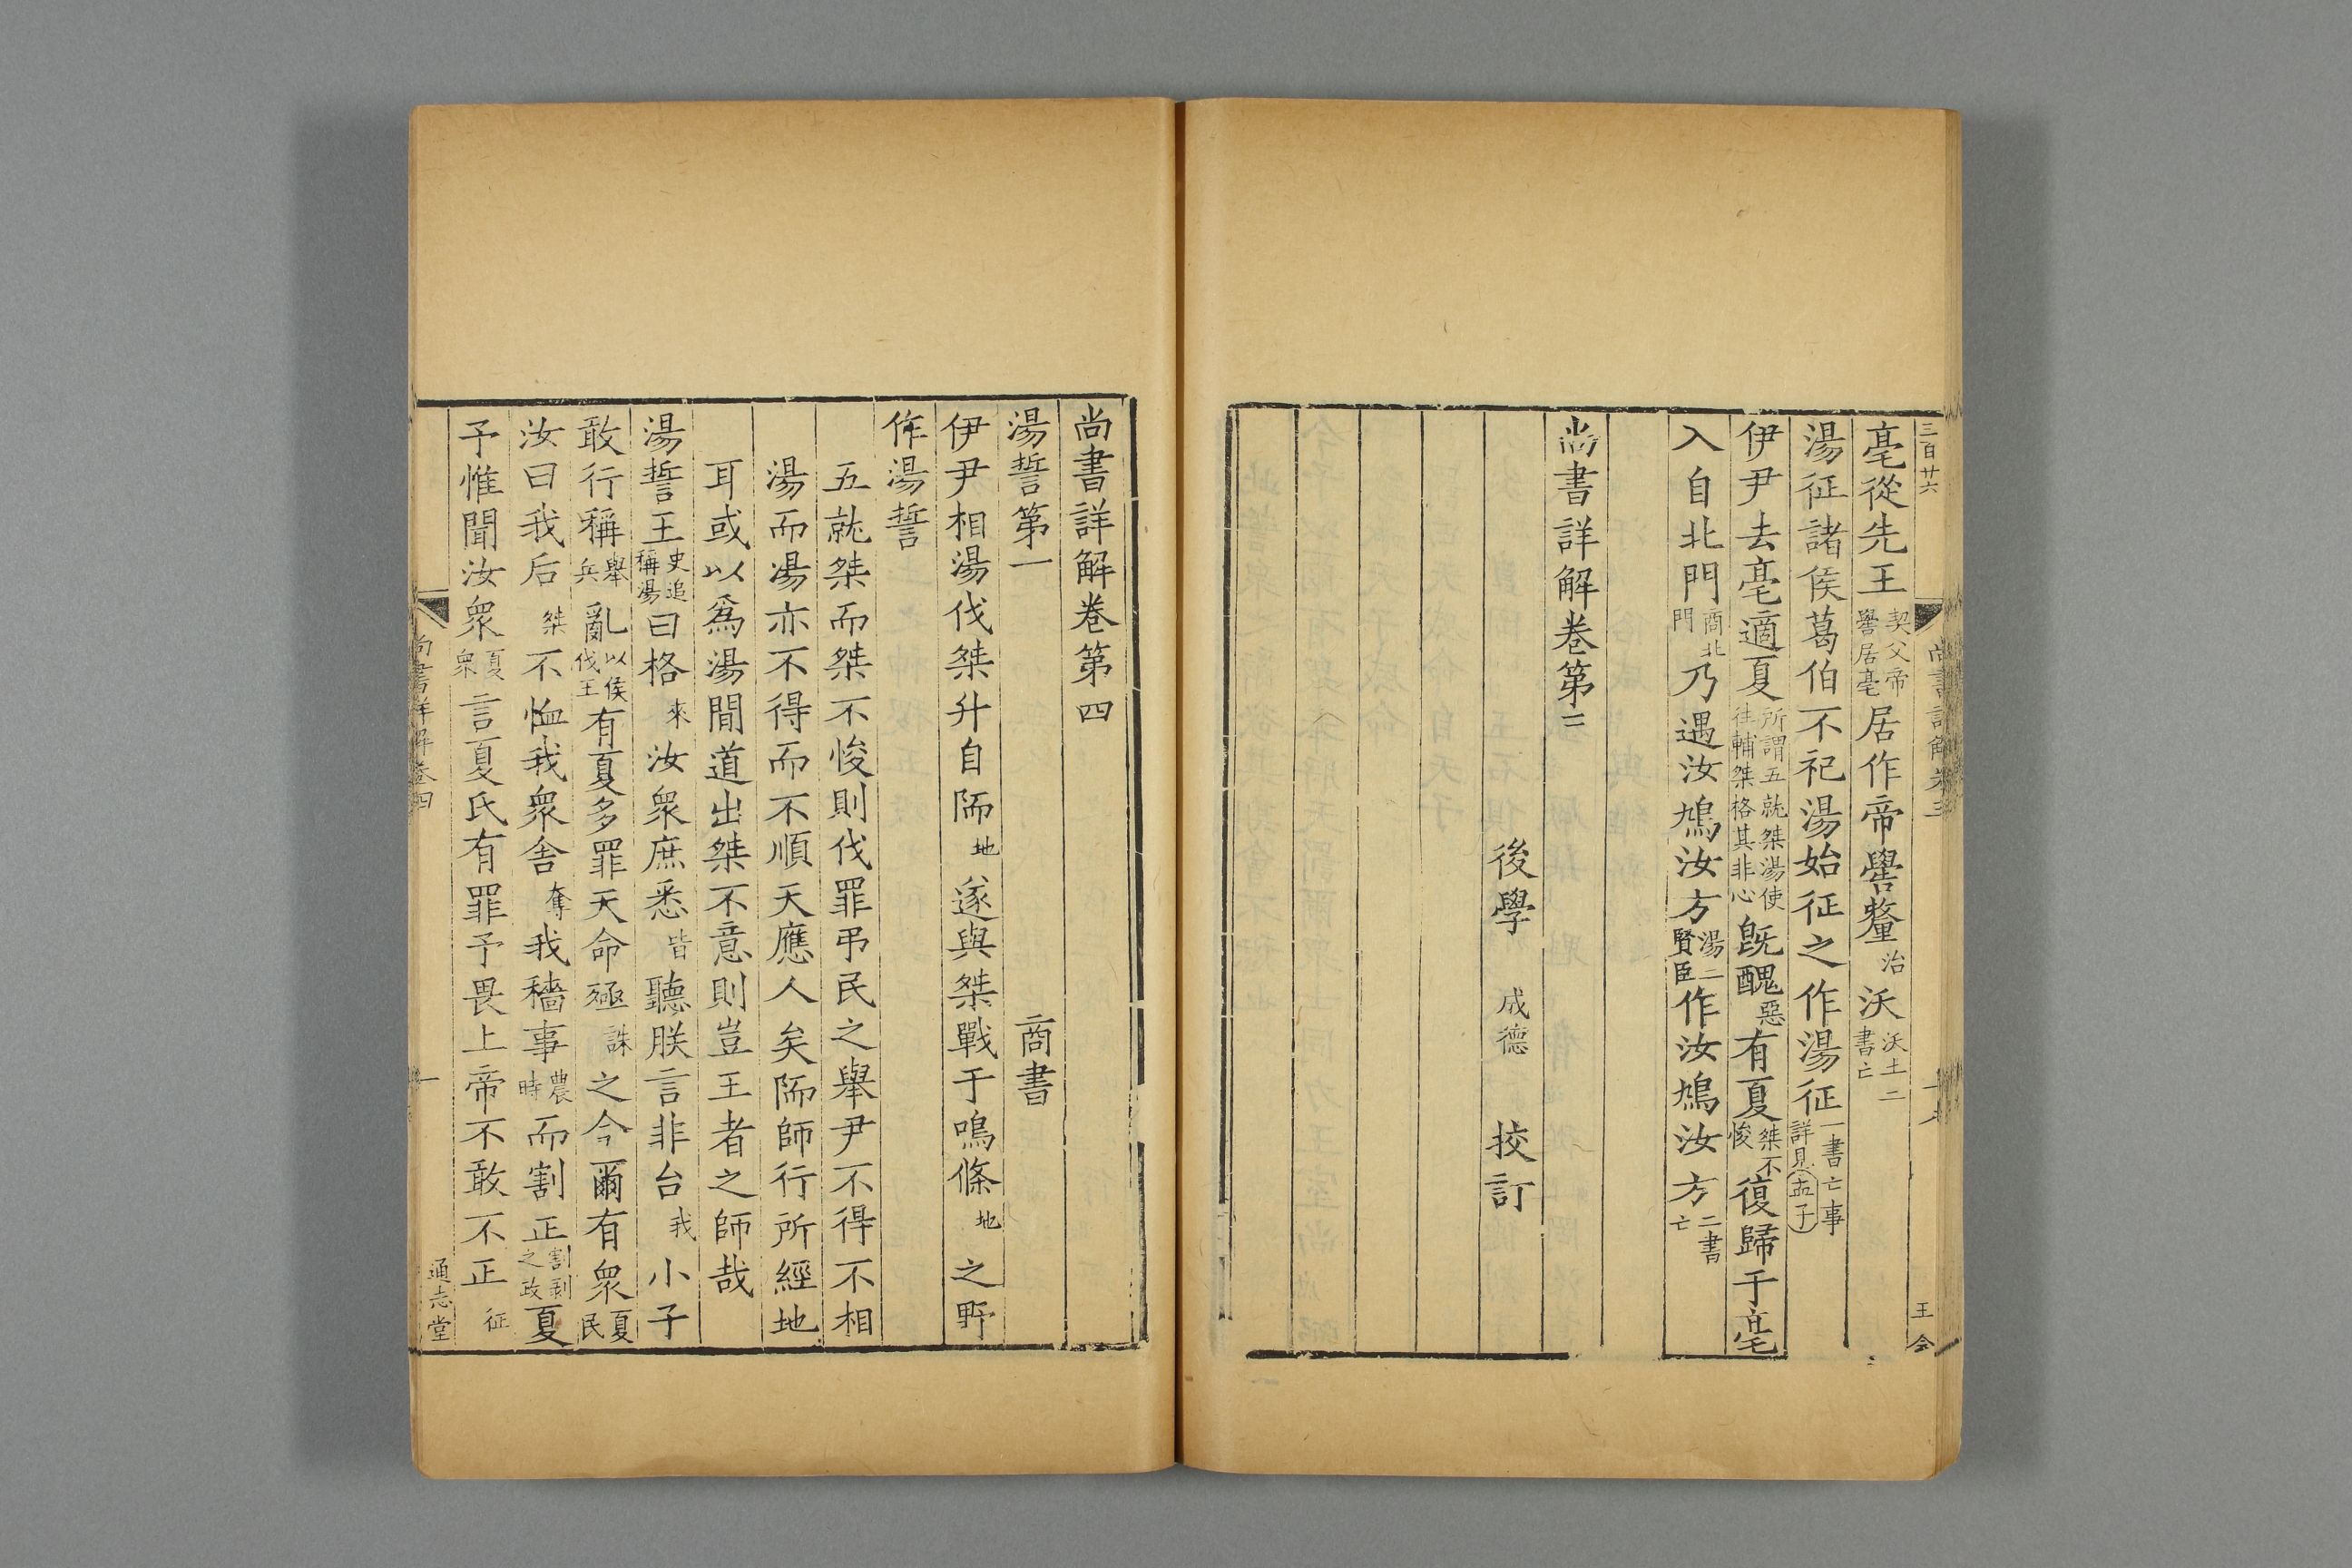 三百廿六
尚書詳解卷三
王公
亳從先王契父帝嚳居亳居作帝嚳釐治沃沃土二書亡
湯征諸侯葛伯不祀湯始征之作湯征一書亡事詳見孟子
伊尹去亳適夏所謂五就桀湯使往輔桀格其非心旣醜惡有夏桀不悛復歸于亳
入自北門商北門乃遇汝鳩汝方湯二賢臣作汝鳩汝方二書亡
尚書詳解卷第三
後學 成德 挍訂
尚書詳解卷第四
湯誓第一 商書
伊尹相湯伐桀升自陑地遂與桀戰于鳴條地之野
作湯誓
五就桀而桀不悛則伐罪弔民之舉尹不得不相
湯而湯亦不得而不順天應人矣陑師行所經地
耳或以爲湯間道出桀不意則豈王者之師哉
湯誓王史追稱湯曰格來汝衆庶悉皆聽朕言非台我小子
敢行稱舉兵亂以侯伐王有夏多罪天命殛誅之今爾有衆夏民
汝曰我后桀不恤我衆舍奪我穡事農時而割正割剥之政夏
予惟聞汝衆夏衆言夏氏有罪予畏上帝不敢不正征
尚書詳解卷四
一
通志堂